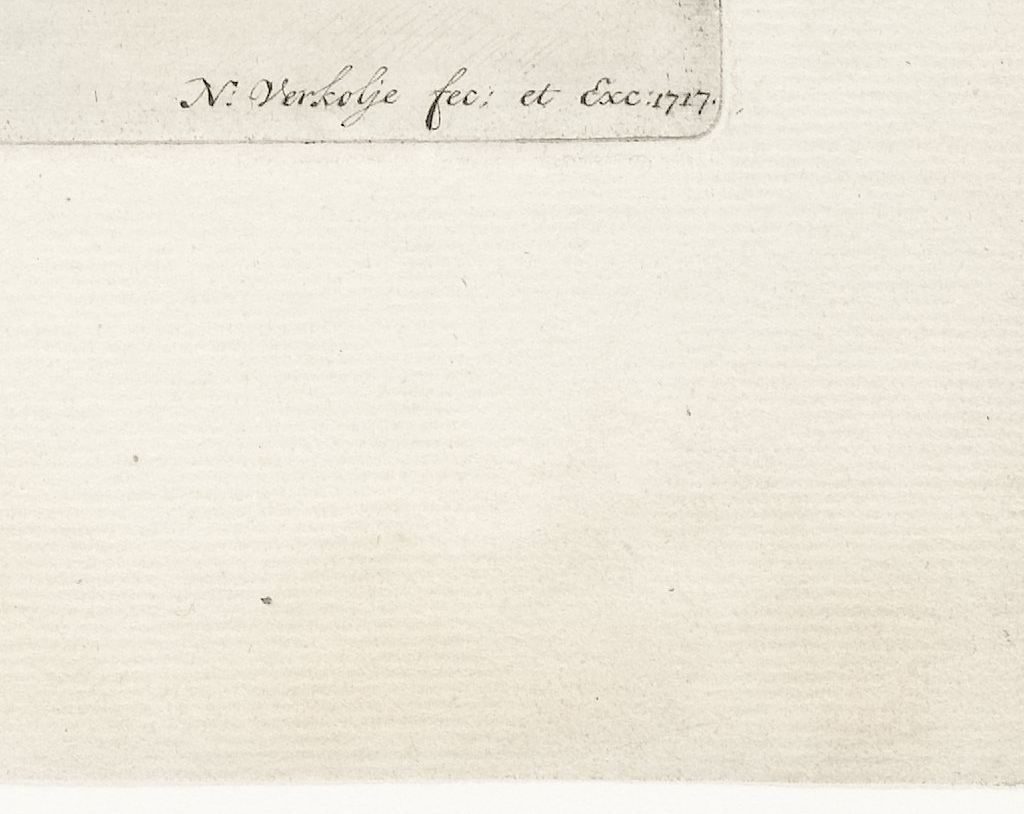 N: Verkolje fec: et Exc: 1717.